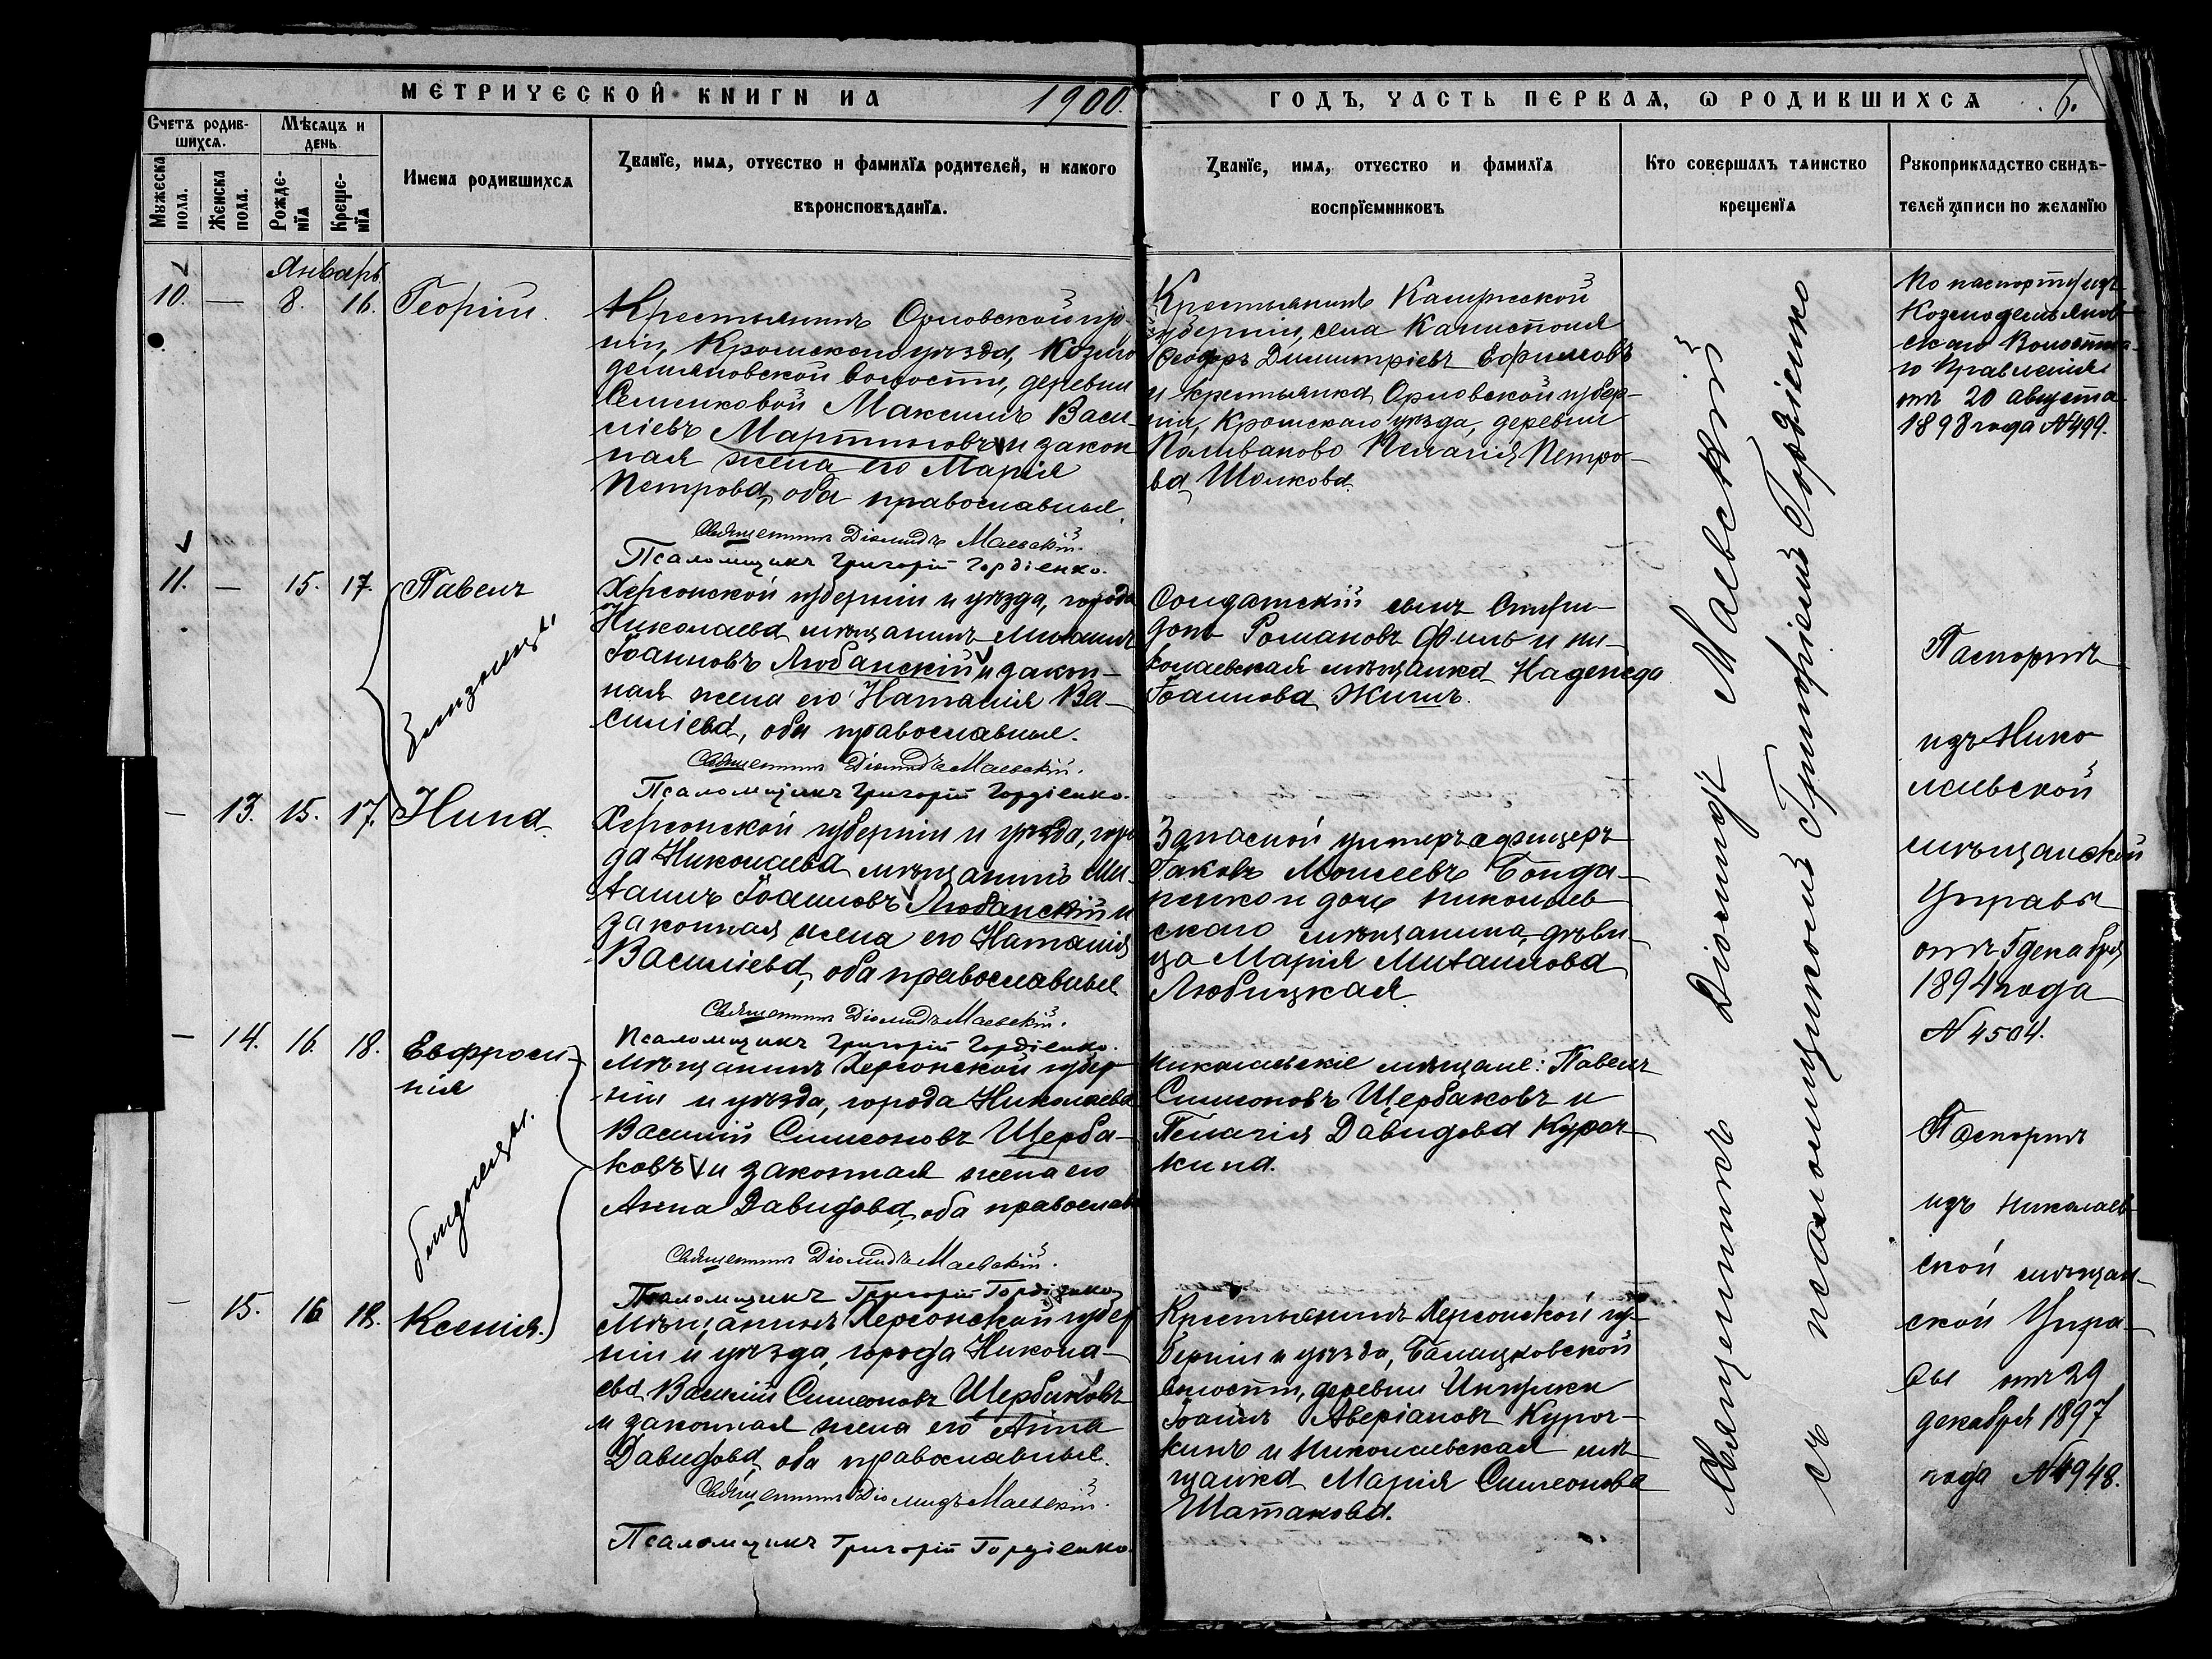 МЕТРИЧЕСКОЙ КНИГИ НА 1900. ГОДЪ, ЧАСТЬ ПЕРВАЯ, Ѡ РОДИВШИХСЯ 6.
Счетъ родив-
шихся.
Мужеска
пола.
Женска
пола.
Мѣсяцъ и
день
Рожде-
нїя
Креще-
нїя
Имена родившихся
Званїе, имя, отчество и фамилїя родителей, и какого
вѣроисповѣданїя.
Званїе, имя, отчество и фамилїя
воспрїемниковъ
Кто совершалъ таинство
крещенїя
Рукоприкладство свидѣ-
телей записи по желанїю
Январь.
10. — 8. 16. Георгій.
Крестьянинъ Орловской губер-
ніи, Кромскаго уѣзда, Козьмо
демьяновской волости, деревни
Семенковой Максимъ Васи-
ліевъ Мартыновъ и закон
ная жена его Марія
Петрова, оба православные.
Священникъ Діомидъ Маевскій.
Псаломщикъ Григорій Гордіенко.
Крестьянинъ Калужской
губерніи, села
Ѳеодоръ Димитріевъ Ефимовъ
и крестьянка Орловской губер-
ніи, Кромскаго уѣзда, деревни
Поливаново Пелагія Петро-
ва Шолкова.
По паспорту изъ
Козьмодемьянов-
скаго Волостна-
го Правленія
отъ 20 августа
1898 года № 499.
11. — 15. 17. Павелъ
Близнецы.
Херсонской губерніи и уѣзда, города
Николаева мѣщанинъ Михаилъ
Іоанновъ Любанскій и закон-
ная жена его Наталія Ва-
силіева, оба православные.
Священникъ Діомидъ Маевскій.
Псаломщикъ Григорій Гордіенко.
Солдатскій сынъ Спири-
донъ Романовъ Филь и ни-
колаевская мѣщанка Надежда
Іоаннова Жигиль.
Паспортъ
изъ Нико
лаевской
мѣщанской
Управы
отъ декабря
1894 года
№ 4504.
— 13. 15. 17. Нина
Херсонской губерніи и уѣзда, горо
да Николаева мѣщанинъ Ми-
хаилъ Іоанновъ Любанскій и
законная жена его Наталія
Василіева, оба православные.
Священникъ Діомидъ Маевскій.
Псаломщикъ Григорій Гордіенко.
Запасной унтеръ офицеръ
Іаковъ Моисеевъ Бонда-
ренко и дочь николаев
скаго мѣщанина, дѣви-
ца Марія Михаилова
Любицкая.
— 14. 16. 18. Евфроси-
нія
Близнецы.
Мѣщанинъ Херсонской губер
ніи и уѣзда, города Николаева
Василій Симеоновъ Щерба-
ковъ и законная жена его
Анна Давидова, оба православ
Священникъ Діомидъ Маевскій.
Псаломщикъ Григорій Гордіенко
Николаевскіе мѣщане: Павелъ
Симеоновъ Щербаковъ и
Пелагія Давидова Куроч-
кина.
Паспортъ
изъ Николаев
ской мѣщан-
ской Упра-
вы отъ 29
декабря 1897
года № 4948.
— 15. 16 18. Ксенія.
Мѣщанинъ Херсонской губер
ніи и уѣзда, города Никола-
ева Василій Симеоновъ Щербаковъ
и законная жена его Анна
Давидова, оба православные.
Священникъ Діомидъ Маевскій.
Псаломщикъ Григорій Гордіенко.
Крестьянинъ Херсонской гу-
берніи и уѣзда, Балацковской
волости, деревни Ингулки
Іоаннъ Аверіановъ Куроч-
кинъ и Николаевская мѣ-
щанка Марія Симеонова
Шатакова.
Священникъ Діомидъ Маевскій
съ псаломщикомъ Григоріемъ Гордіенко